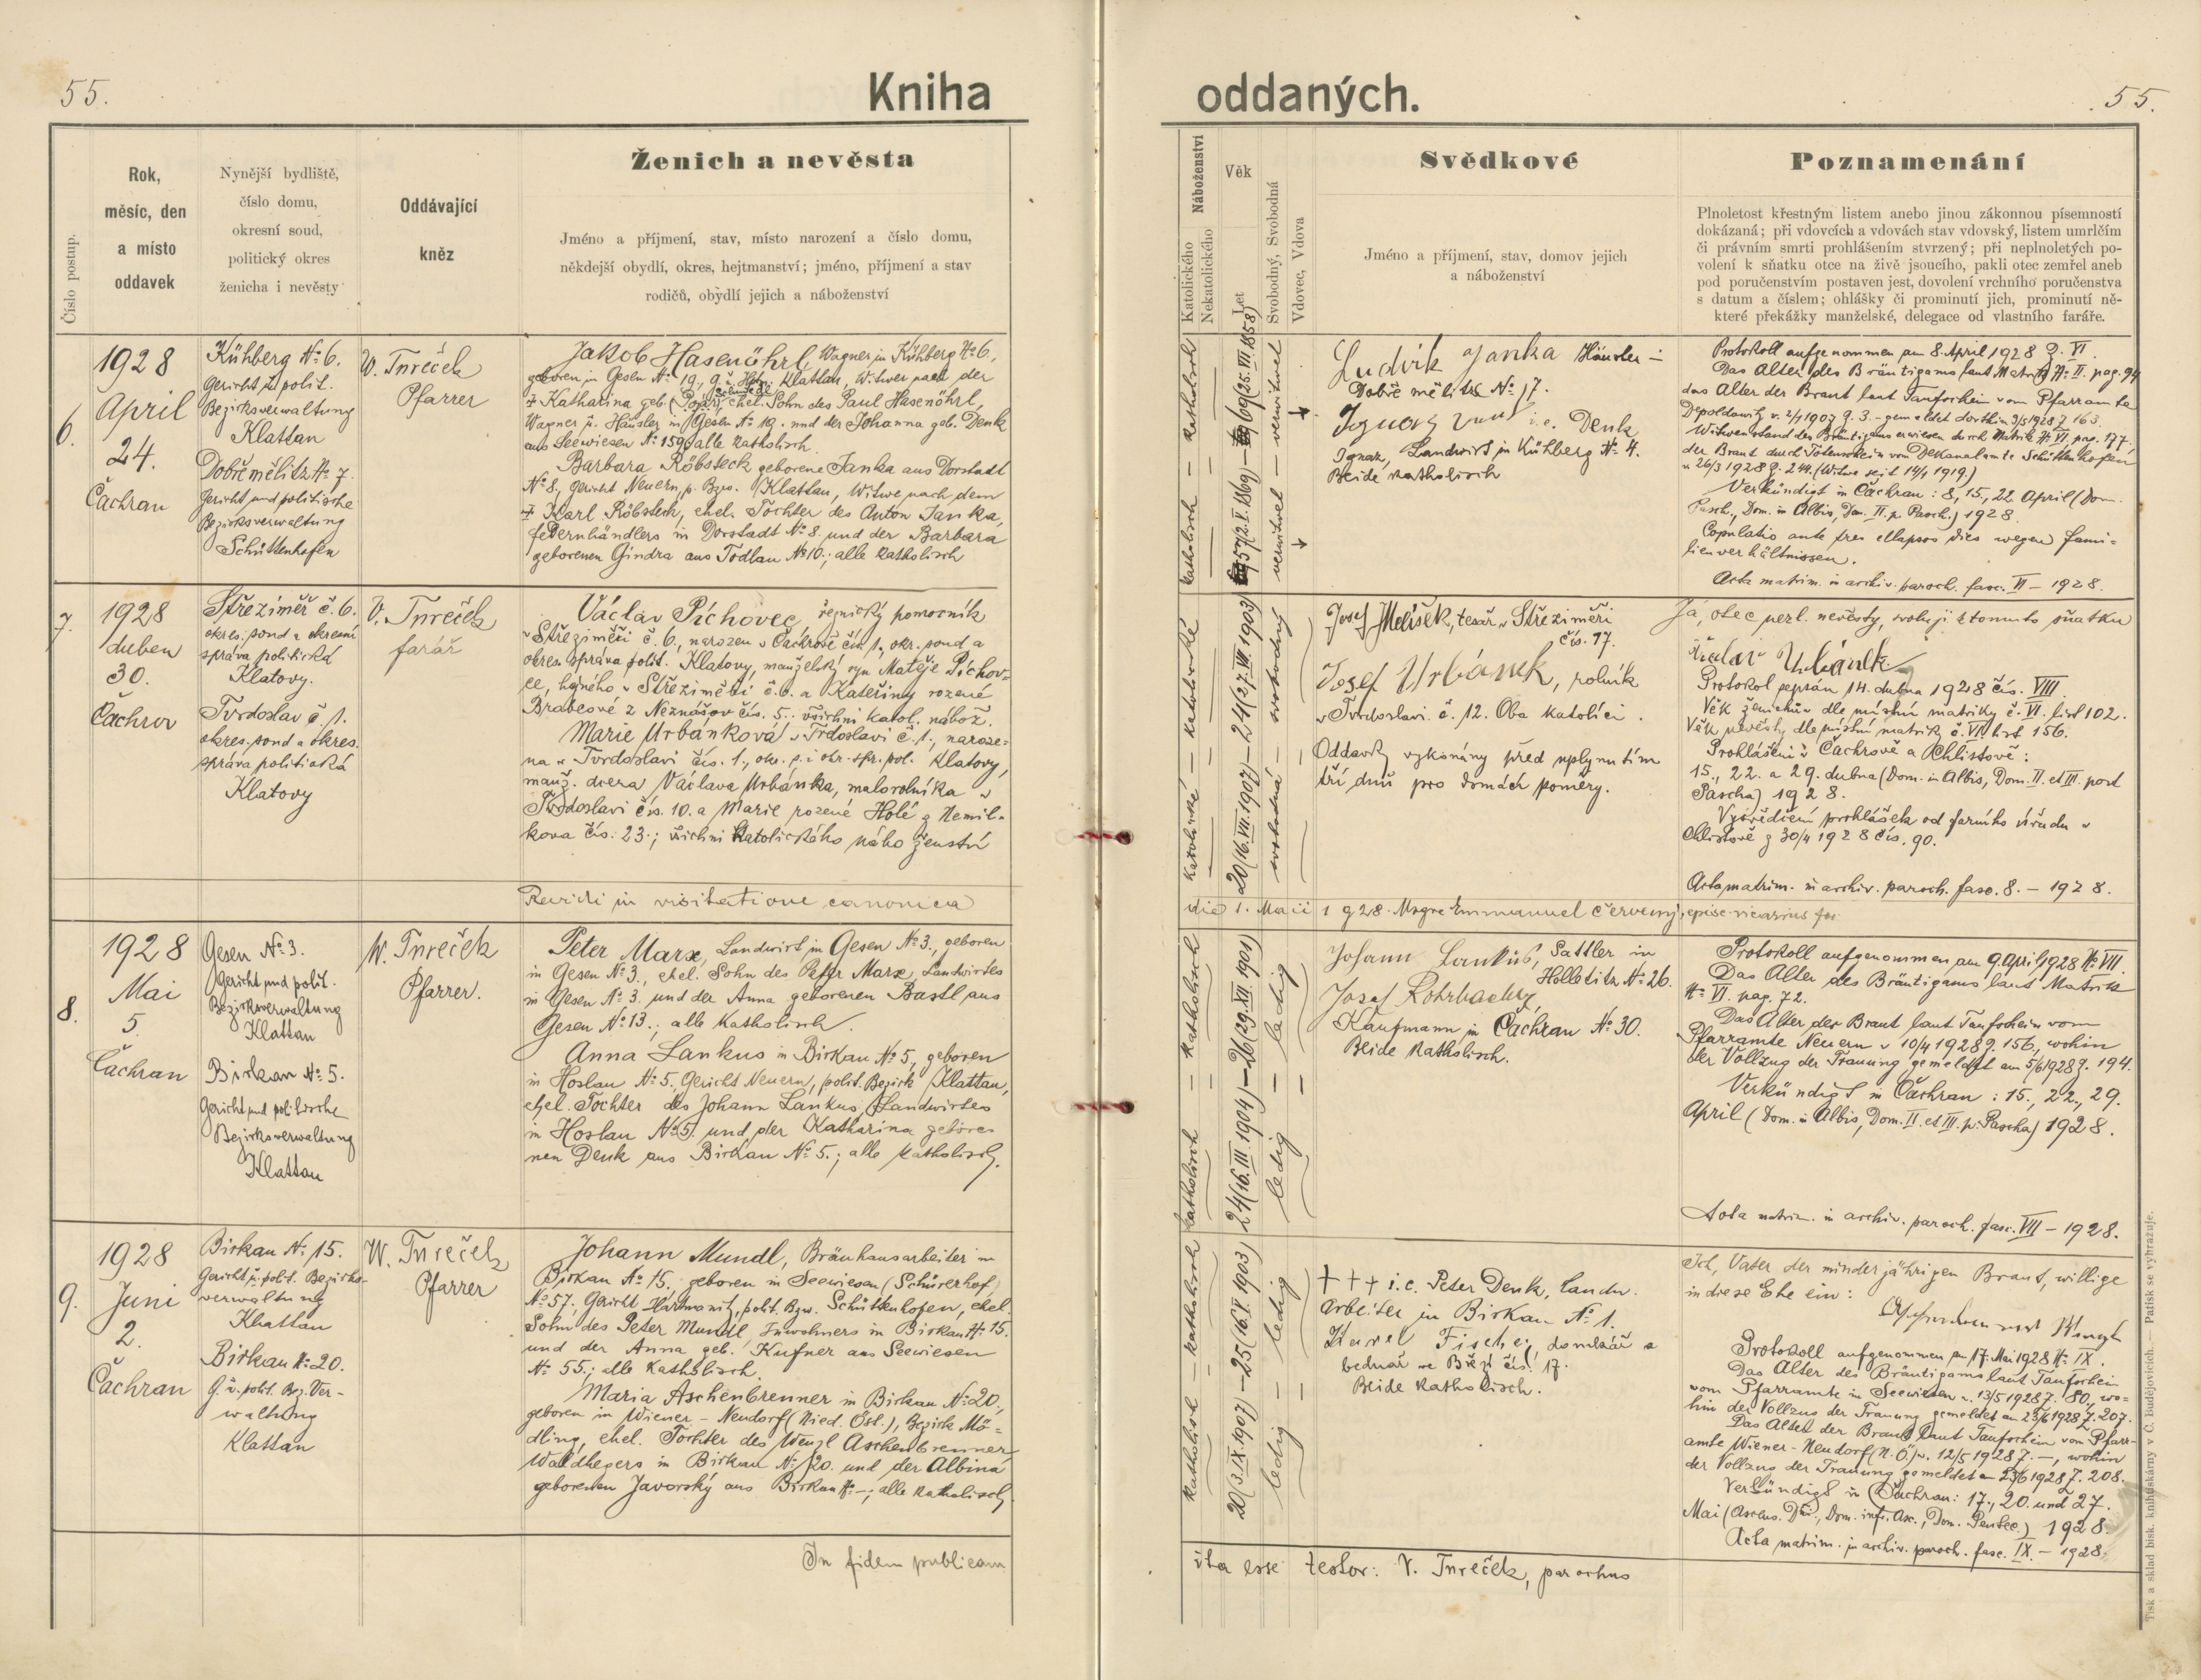 55.
Kniha
oddaných.
55.
Číslo postup.
Rok,
měsíc, den
a místo
oddavek
Nynější bydliště,
číslo domu,
okresní soud,
politický okres
ženicha i nevěsty
Oddávající
kněz
Ženich a nevěsta
Jméno a příjmení, stav, místo narození a číslo domu,
někdejší obydlí, okres, hejtmanství; jméno, příjmení a stav
rodičů, obydlí jejich a náboženství
Náboženství
Katolického
Nekatolického
Věk
Let
Svobodný, Svobodná
Vdovec, Vdova
Svědkové
Jméno a příjmení, stav, domov jejich
a náboženství
Poznamenání
Plnoletost křestným listem anebo jinou zákonnou písemností
dokázaná; při vdovcích a vdovách stav vdovský, listem umrlčím
či právním smrti prohlášením stvrzený; při neplnoletých po-
volení k sňatku otce na živě jsoucího, pakli otec zemřel aneb
pod poručenstvím postaven jest, dovolení vrchního poručenstva
s datum a číslem; ohlášky či prominutí jich, prominutí ně-
které překážky manželské, delegace od vlastního faráře.
6.
1928
April
24.
Čachrau
Kühberg No 6.
Gericht u. polit.
Bezirksverwaltung
Klattau
Dobřemělitz No 7.
Gericht und politische
Bezirksverwaltung
Schüttenhofen
W. Tureček
Pfarrer
Jakob Hasenöhrl, Wagner in Kühberg No 6,
geboren in Gesen No 19., G. u. Klattau, Witwer nach der
† Katharina geb. ehel. Sohn des Paul Hasenöhrl,
Wagner u. Häusler in Gesen No 19. und der Johanna geb. Denk
aus Seewiesen No 159; alle katholisch.
Barbara Röbsteck geborene Janka aus Dorstadt
No 8., Gericht Neuern, p. Bzv. Klattau, Witwe nach dem
† Karl Röbsteck, ehel. Tochter des Anton Janka,
Federnhändlers in Dorstadt No 8. und der Barbara
geborenen Gindra aus Todlau No 10.; alle katholisch
katholisch — katholisch
57 (2. I. 1869) — 69 (25. III. 1858)
verwitwet — verwitwet
Ludvík Janka Häusler in
Dobřemělitz No 17.
i. e. Denk
Ignaz, Landwirt in Kühberg No 4.
Beide katholisch
Protokoll aufgenommen am 8. April 1928 Z. VI.
Das Alter des Bräutigams laut Matrik No II. pag. 94
das Alter der Braut laut Taufschein vom Pfarramte
Depoldowitz v. 2/4 1907 Z. 3. – gemeldet dorthin 3/5 1928 Z. 163.
Witwenstand des Bräutigams erwiesen durch Matrik No VI. pag. 177,
der Braut durch Totenschein vom Dekanalamte Schüttenhofen
v. 26/3 1928 Z. 244. (Witwe seit 14/1 1919)
Verkündigt in Čachrau: 8., 15., 22. April (Dom.
Pasch., Dom. in Albis, Dom. II. p. Pasch.) 1928.
Copulatio ante tres elapsos dies wegen Fami-
lienverhältnissen.
Acta matrim. in archiv. paroch. fasc. VI – 1928.
7.
1928
duben
30.
Čachrov
Střeziměř č. 6.
okres. soud a okresní
správa politická
Klatovy.
Tvrdoslav č. 1.
okres. soud a okres.
správa politická
Klatovy
V. Tureček
farář
Václav Píchovec, řeznický pomocník
v Střeziměři č. 6., narozen v Čachrově čís. 1., okr. soud a
okres. správa polit. Klatovy, manželský syn Matěje Píchov-
ce, hajného v Střeziměři č. 6. a Kateřiny rozené
Brabcové z Neznášov čís. 5.; všichni katol. nábož.
Marie Urbánková v Tvrdoslavi č. 1., naroze-
na v Tvrdoslavi čís. 1., okr. s. i okr. spr. pol. Klatovy,
manž. dcera Václava Urbánka, malorolníka v
Tvrdoslavi čís. 10. a Marie rozené Holé z Nemil-
kova čís. 23.; všichni katolického náboženství
katolické — katolické
20 (16. VII. 1907) — 24 (27. VII. 1903)
svobodná — svobodný
Josef Melíšek, tesař v Střeziměři
čís. 17.
Josef Urbánek, rolník
v Tvrdoslavi č. 12. Oba katolíci.
Oddavky vykonány před uplynutím
tří dnů pro domácí poměry.
Já, otec nezl. nevěsty, svoluji k tomuto sňatku
Václav Urbánek
Protokol sepsán 14. dubna 1928 čís. VIII.
Věk ženichův dle místní matriky č. VI. list 102.
Věk nevěsty dle místní matriky č. VI. list 156.
Prohlášeni v Čachrově a Chlistově:
15., 22. a 29. dubna (Dom. in Albis, Dom. II. et III. post
Pascha) 1928.
Vysvědčení prohlášek od farního úřadu v
Chlistově z 30/4 1928 čís. 90.
Acta matrim. in archiv. paroch. fasc. 8. – 1928.
Revidi in visitatione canonica
die 1. Maii 1928. Msgre Emmanuel Červený, episc. vicarius for.
8.
1928
Mai
5.
Čachrau
Gesen No 3.
Gericht und polit.
Bezirksverwaltung
Klattau
Birkau No 5.
Gericht und politische
Bezirksverwaltung
Klattau
W. Tureček
Pfarrer.
Peter Marx, Landwirt in Gesen No 3., geboren
in Gesen No 3., ehel. Sohn des Peter Marx, Landwirtes
in Gesen No 3. und der Anna geborenen Bastl aus
Gesen No 13.; alle katholisch.
Anna Lankus in Birkau No 5., geboren
in Hoslau No 5., Gericht Neuern, polit. Bezirk Klattau,
ehel. Tochter des Johann Lankus, Landwirtes
in Hoslau No 5. und der Katharina gebore-
nen Denk aus Birkau No 5.; alle katholisch.
katholisch — katholisch
24 (16. III. 1904) — 26 (29. XII. 1901)
ledig — ledig
Johann Lankus, Sattler in
Holletitz No 26.
Josef Rohrbacher,
Kaufmann in Čachrau No 30.
Beide katholisch.
Protokoll aufgenommen am 9. April 1928 No VII.
Das Alter des Bräutigams laut Matrik
No VI. pag. 72.
Das Alter der Braut laut Taufschein vom
Pfarramte Neuern v. 10/4 1928 Z. 156, wohin
der Vollzug der Trauung gemeldet am 5/6 1928 Z. 194.
Verkündigt in Čachrau: 15., 22., 29.
April (Dom. in Albis, Dom. II. et III. p. Pascha) 1928.
Acta matrim. in archiv. paroch. fasc. VII – 1928.
9.
1928
Juni
2.
Čachrau
Birkau No 15.
Gericht u. polit. Bezirks-
verwaltung
Klattau
Birkau No 20.
G. u. polit. Bez. Ver-
waltung
Klattau
W. Tureček
Pfarrer
Johann Mundl, Bräuhausarbeiter in
Birkau No 15, geboren in Seewiesen (Schürerhof)
No 57. Gericht Hartmanitz, polit. Bzv. Schüttenhofen, ehel.
Sohn des Peter Mundl, Inwohners in Birkau No 15.
und der Anna geb. Kufner aus Seewiesen
No 55.; alle katholisch.
Maria Aschenbrenner in Birkau No 20.,
geboren in Wiener-Neudorf (Nied. Öst.), Bezirk Mö-
dling, ehel. Tochter des Wenzl Aschenbrenner
Waldhegers in Birkau No 20. und der Albina
geborenen Javorský aus Birkau No –; alle katholisch.
katholisch — katholisch
20 (3. IX. 1907) — 25 (16. V. 1903)
ledig — ledig
+ + + i. e. Peter Denk, Landw.
arbeiter in Birkau No 1.
Karel Fischer, domkář a
bednář ve Březí čís. 17.
Beide katholisch.
Ich, Vater der minderjährigen Braut, willige
in diese Ehe ein:
Protokoll aufgenommen am 17. Mai 1928 No IX.
Das Alter des Bräutigams laut Taufschein
vom Pfarramte in Seewiesen v. 13/5 1928 Z. 80, wo-
hin der Vollzug der Trauung gemeldet am 23/6 1928 Z. 207.
Das Alter der Braut laut Taufschein vom Pfarr-
amte Wiener-Neudorf (N. Ö.) v. 12/5 1928 Z. –, wohin
der Vollzug der Trauung gemeldet am 23/6 1928 Z. 208.
Verkündigt in Čachrau: 17., 20. und 27.
Mai (Ascens. Dni., Dom. infr. Asc., Dom. Pentec.) 1928.
Acta matrim. in archiv. paroch. fasc. IX. – 1928.
In fidem publicam
ita esse testor: V. Tureček, parochus
Tisk a sklad bisk. knihtiskárny v Č. Budějovicích. — Patisk se vyhražuje.